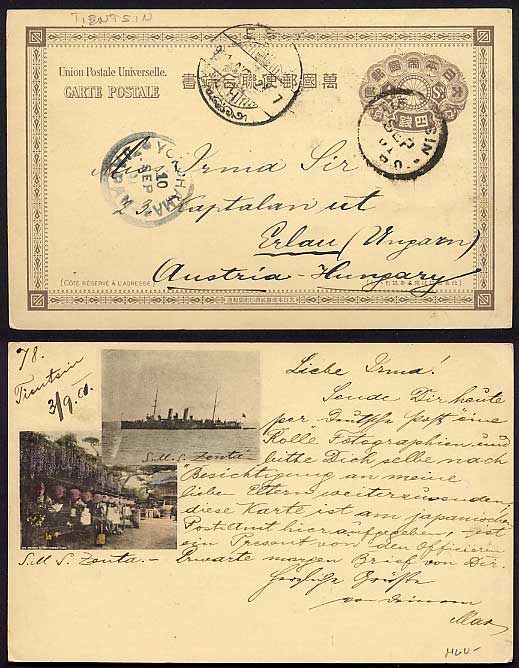 TIENTSIN
Union Postale Universelle.
CARTE POSTALE
萬國郵便聯合端書
大日本帝國郵便
四錢
YOKOHAMA
10
SEP
JAPAN
SEP
Miss Irma Sir
23 Kaptalan ut
Erlau (Ungarn)
Austria-Hungary
(CÔTÉ RÉSERVÉ À L'ADRESSE.)
78.
Tientsin
3/9.01.
S.M.S. Zenta
S.M.S. Zenta.-
Liebe Irma!
Sende Dir heute
per Deutsche Post eine
Rolle Fotographien und
bitte Dich selbe nach
Besichtigung an meine
lieben Eltern weiterzusenden,
diese Karte ist am japanischen
Post Amt hier aufgegeben, ist
ein Present von den Officieren
Erwarte morgen Brief von Dir.
Herzliche Grüße
von Deinem
Max